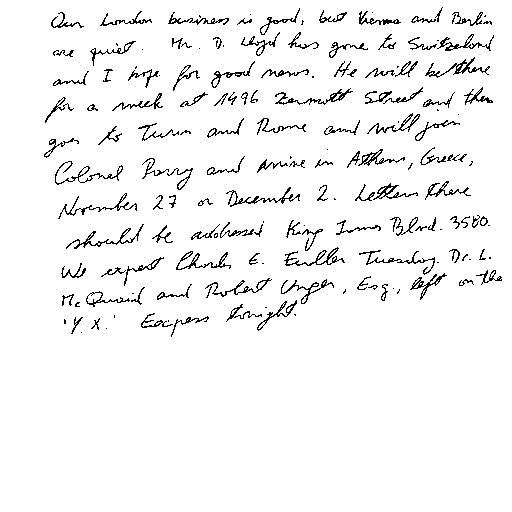 Our London business is good, but Vienna and Berlin
are quiet. Mr. D. Lloyd has gone to Switzeland
and I hope for good news. He will be there
for a week at 1496 Zermott Street and then
goes to Turin and Rome and will join
Colonel Parry and arrive in Athens, Greece,
November 27 or December 2. Letters there
should be addressed King James Blvd. 3580.
We expect Charles E. Fuller Tuesday. Dr. L.
McQuaid and Robert Unger, Esq., left on the
'Y.X.' Express tonight.